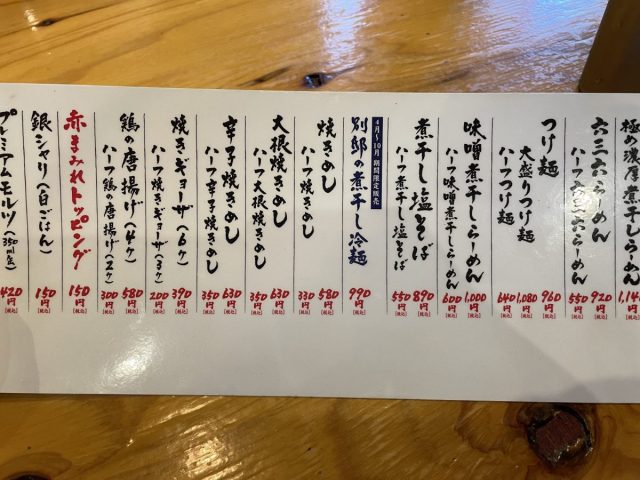 極め濃厚煮干しらーめん 1,14
六三六らーめん 920円[税込]
ハーフ六三六らーめん 550円[税込]
つけ麺 960円[税込]
大盛りつけ麺 1,080円[税込]
ハーフつけ麺 640円[税込]
味噌煮干しらーめん 1,000円[税込]
ハーフ味噌煮干しらーめん 600円[税込]
煮干し塩そば 890円[税込]
ハーフ煮干し塩そば 550円[税込]
4月〜10月 期間限定販売
別邸の煮干し冷麺 990円[税込]
焼きめし 580円[税込]
ハーフ焼きめし 330円[税込]
大根焼きめし 630円[税込]
ハーフ大根焼きめし 350円[税込]
辛子焼きめし 630円[税込]
ハーフ辛子焼きめし 350円[税込]
焼きギョーザ(6ヶ) 390円[税込]
ハーフ焼きギョーザ(3ヶ) 200円[税込]
鶏の唐揚げ(4ヶ) 580円[税込]
ハーフ鶏の唐揚げ(2ヶ) 300円[税込]
赤まみれトッピング 150円[税込]
銀シャリ(白ごはん) 150円[税込]
プレミアムモルツ(350ml缶) 420円[税込]